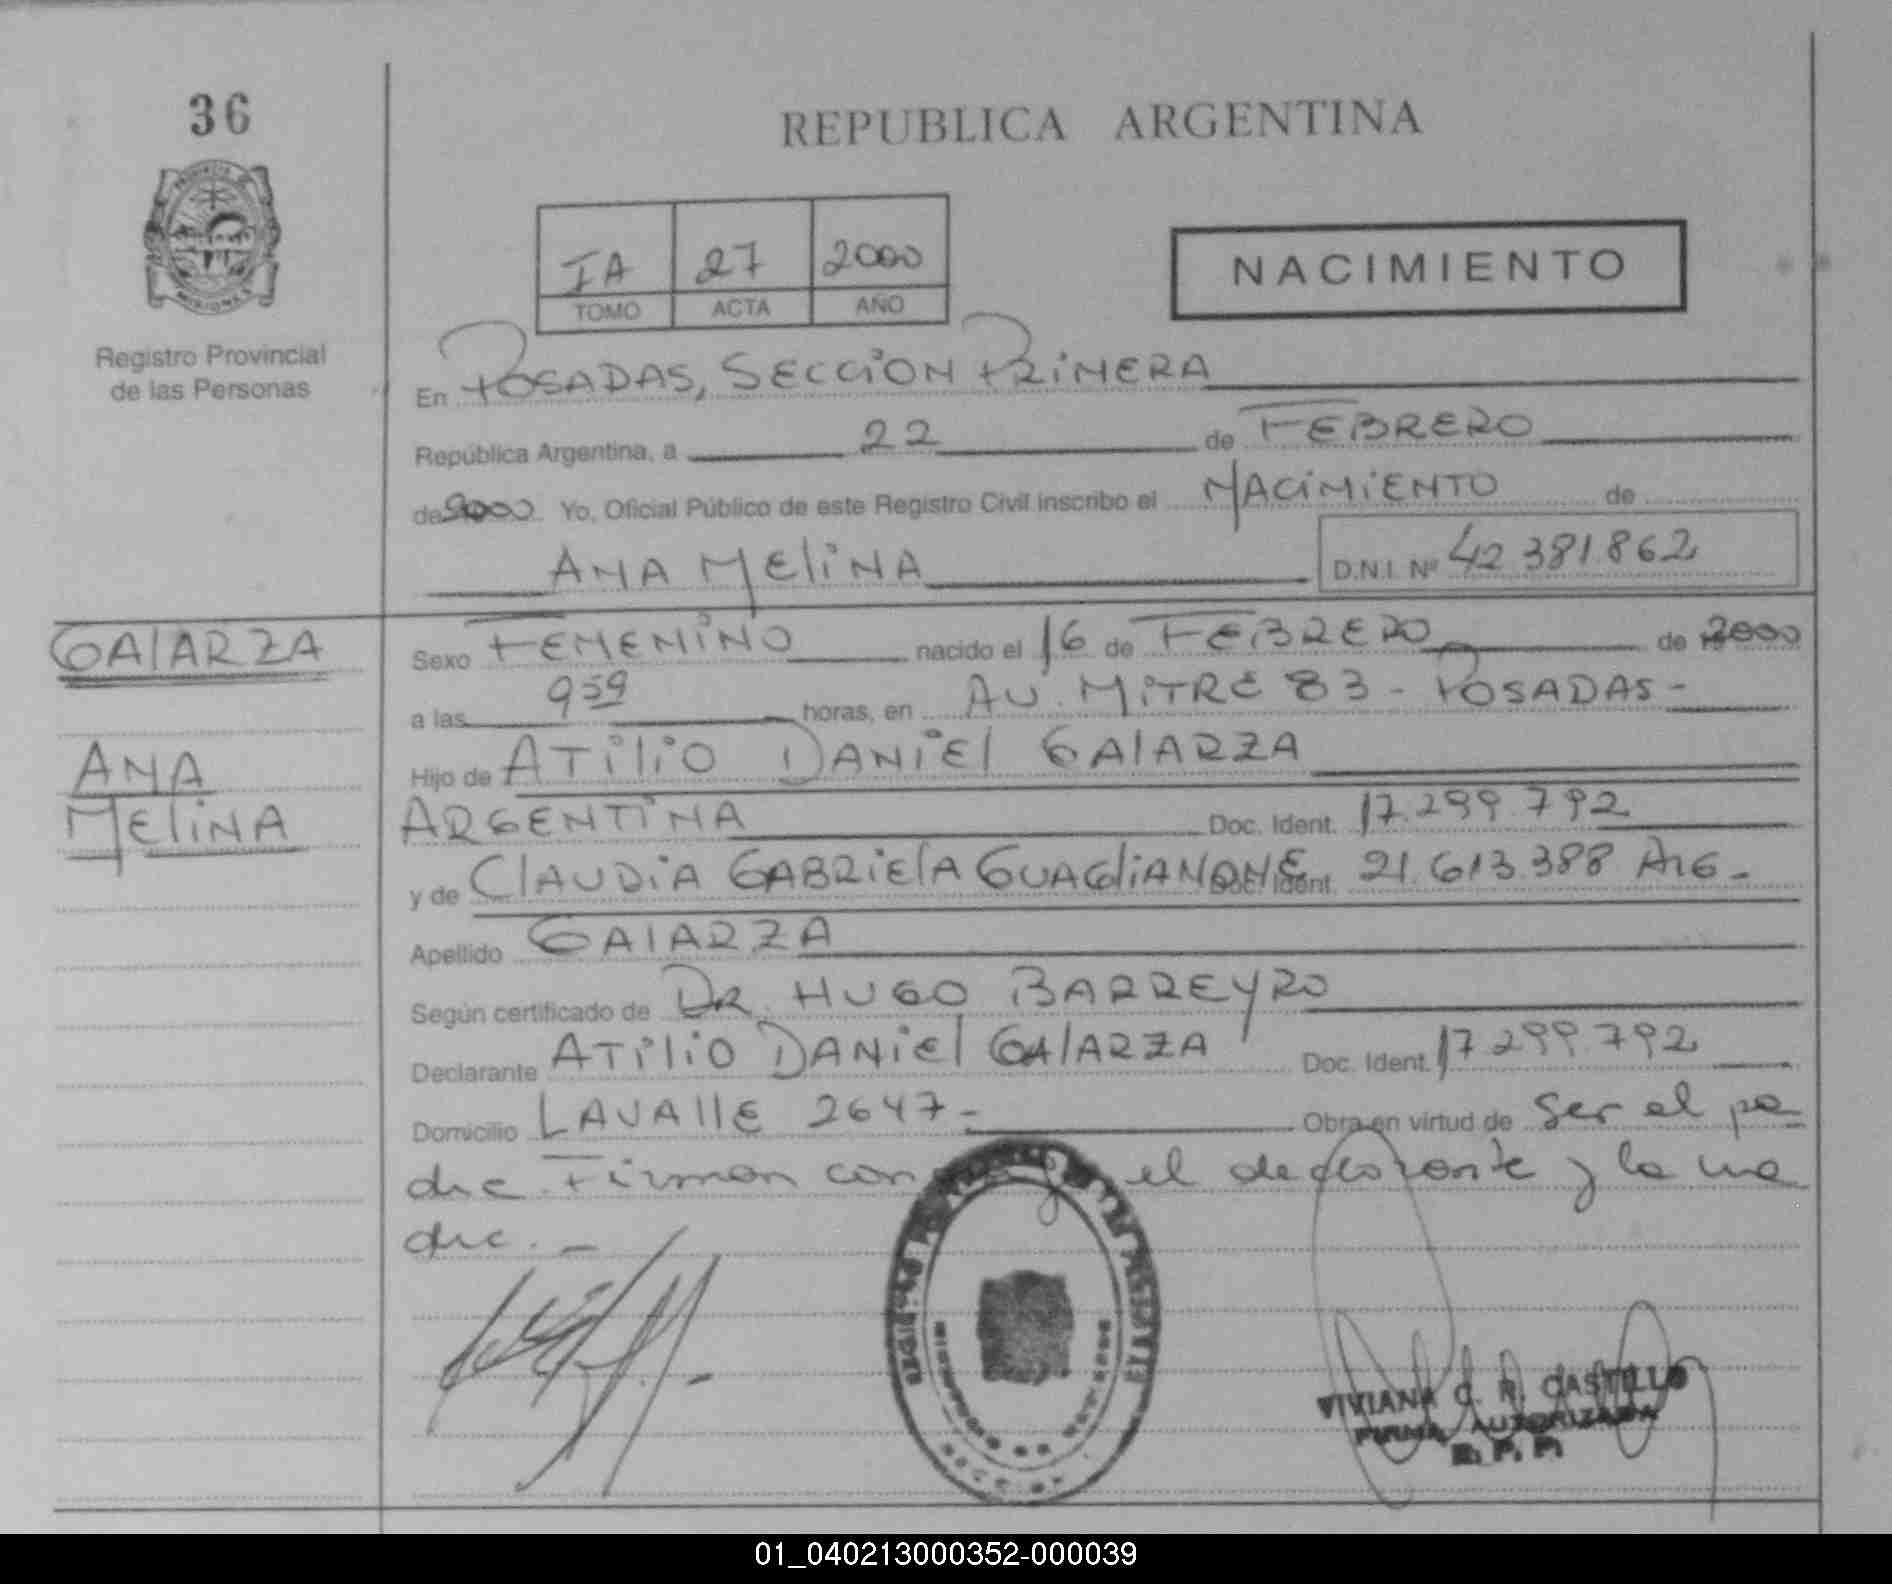 36
REPUBLICA ARGENTINA
PROVINCIA DE
MISIONES
Registro Provincial
de las Personas
IA 27 2000
TOMO ACTA AÑO
NACIMIENTO
En POSADAS, SECCION PRIMERA
República Argentina, a 22 de FEBRERO
de 2000 Yo, Oficial Público de este Registro Civil inscribo el NACIMIENTO de
ANA MELINA D.N.I. Nº 42 381.862
GALARZA
ANA
MELINA
Sexo FEMENINO nacido el 16 de FEBRERO de 2000
a las 9 59 horas, en AV. MITRE 83 - POSADAS -
Hijo de ATILIO DANIEL GALARZA
ARGENTINA Doc. Ident. 17.299.792
y de CLAUDIA GABRIELA GUAGLIANONE Doc. Ident. 21.613.388 ARG -
Apellido GALARZA
Según certificado de DR. HUGO BARREYRO
Declarante ATILIO DANIEL GALARZA Doc. Ident. 17.299.792
Domicilio LAVALLE 2647 - Obra en virtud de ser el pa-
dre. Firman con el declarante y la ma
dre. -
VIVIANA C. R. CASTILLO
FIRMA AUTORIZADA
R. P. P.
01_040213000352-000039